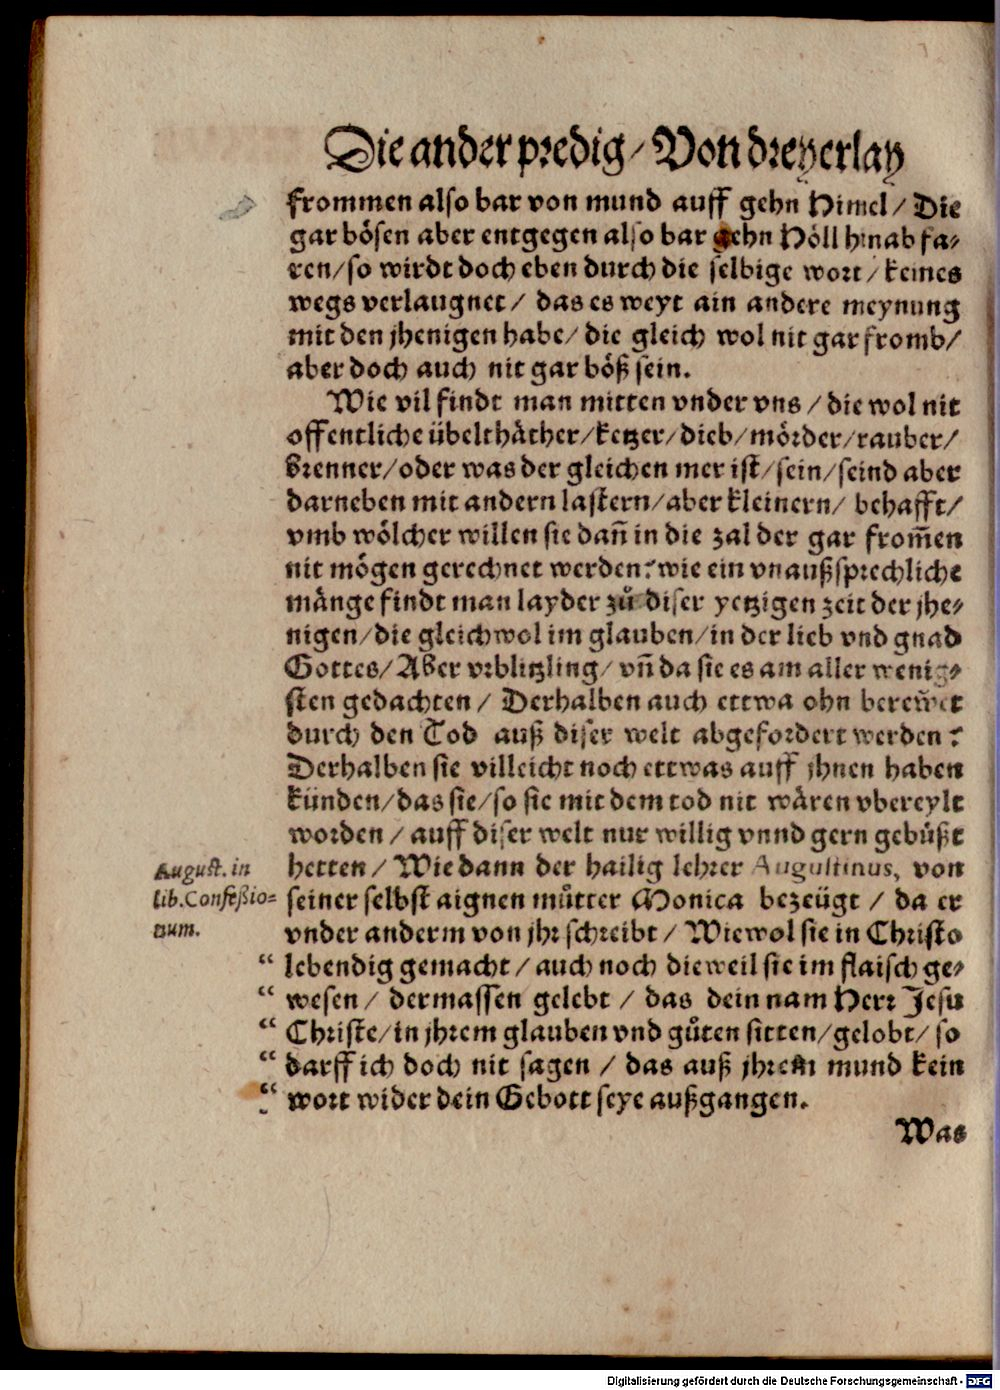 Die ander predig / Von dreyerlay
frommen also bar von mund auff gehn Himel / Die
gar bösen aber entgegen also bar gehn Höll hinab fa-
ren / so wirdt doch eben durch die selbige wort / keines
wegs verlaugnet / das es weyt ain andere meynung
mit den jhenigen habe / die gleich wol nit gar fromb /
aber doch auch nit gar böß sein.
Wie vil findt man mitten vnder vns / die wol nit
offentliche übelthäther / ketzer / dieb / mörder / rauber /
brenner / oder was der gleichen mer ist / sein / seind aber
darneben mit andern lastern / aber kleinern / behafft /
vmb wölcher willen sie dañ in die zal der gar from̃en
nit mögen gerechnet werden? wie ein vnaußsprechliche
mänge findt man layder zů diser yetzigen zeit der jhe-
nigen / die gleichwol im glauben / in der lieb vnd gnad
Gottes / Aber vrblitzling / vñ da sie es am aller wenig-
sten gedachten / Derhalben auch ettwa ohn berewet
durch den Tod auß diser welt abgefordert werden?
Derhalben sie villeicht noch ettwas auff jhnen haben
künden / das sie / so sie mit dem tod nit wären vbereylt
worden / auff diser welt nur willig vnnd gern gebüßt
hetten / Wie dann der hailig lehrer Augustinus, von
seiner selbst aignen můtter Monica bezeügt / da er
vnder anderm von jhr schreibt / Wiewol sie in Christo
“ lebendig gemacht / auch noch dieweil sie im flaisch ge-
“ wesen / dermassen gelebt / das dein nam Herr Jesu
“ Christe / in jhrem glauben vnd gůten sitten / gelobt / so
“ darff ich doch nit sagen / das auß jhrem mund kein
“ wort wider dein Gebott seye außgangen.
Was
August. in
lib. Confeßio-
num.
Digitalisierung gefördert durch die Deutsche Forschungsgemeinschaft - DFG